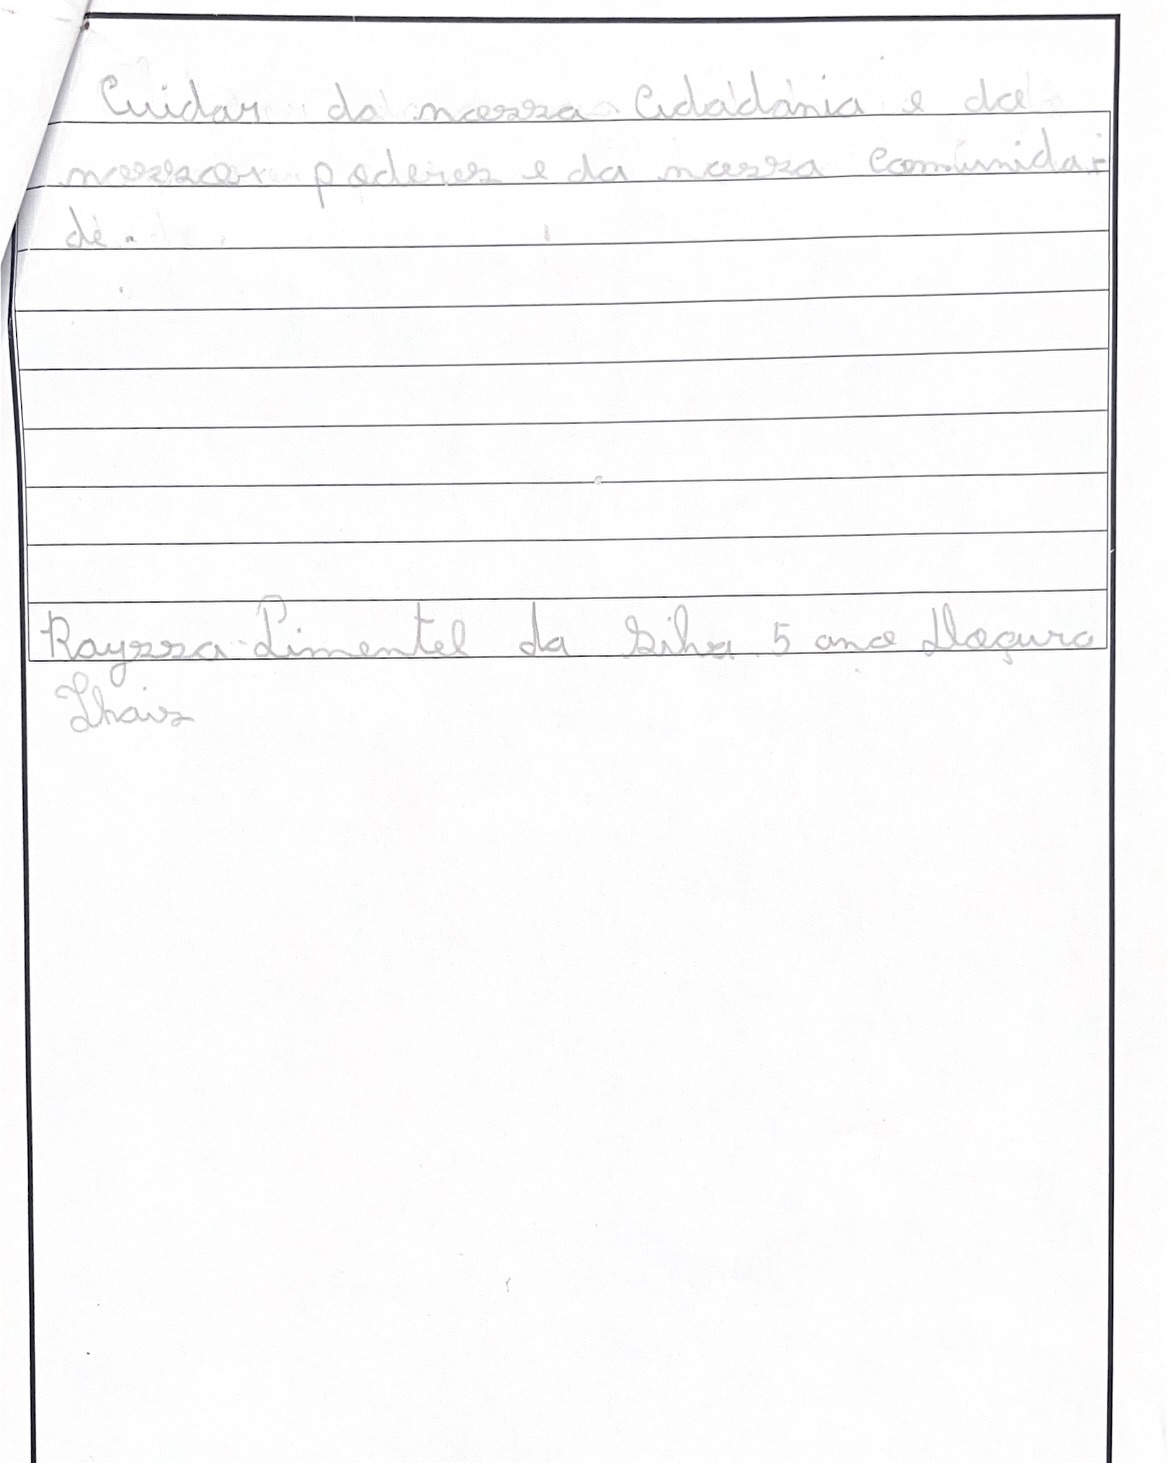 Cuidar da nossa Cidadania e da
nossos poderes e da nossa comunida-
de.
Rayssa Pimentel da Silva 5 ano
Thais